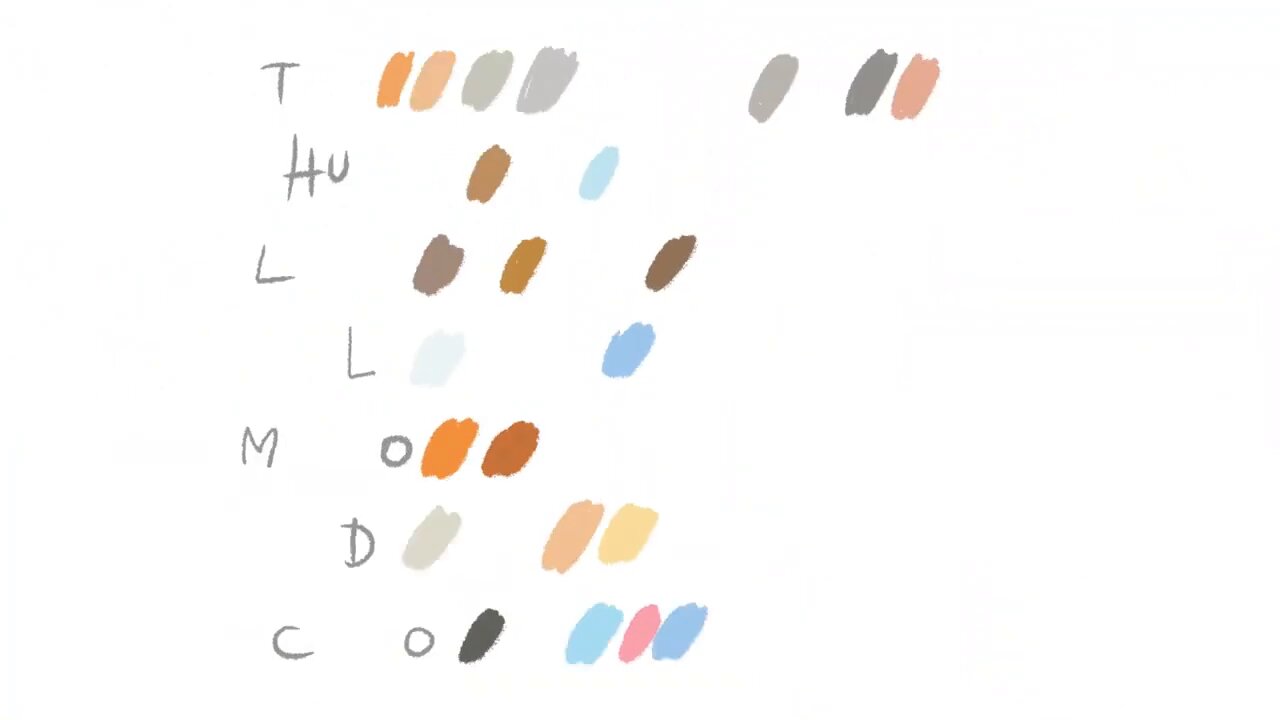 T
HU
L
L
M O
D
C O